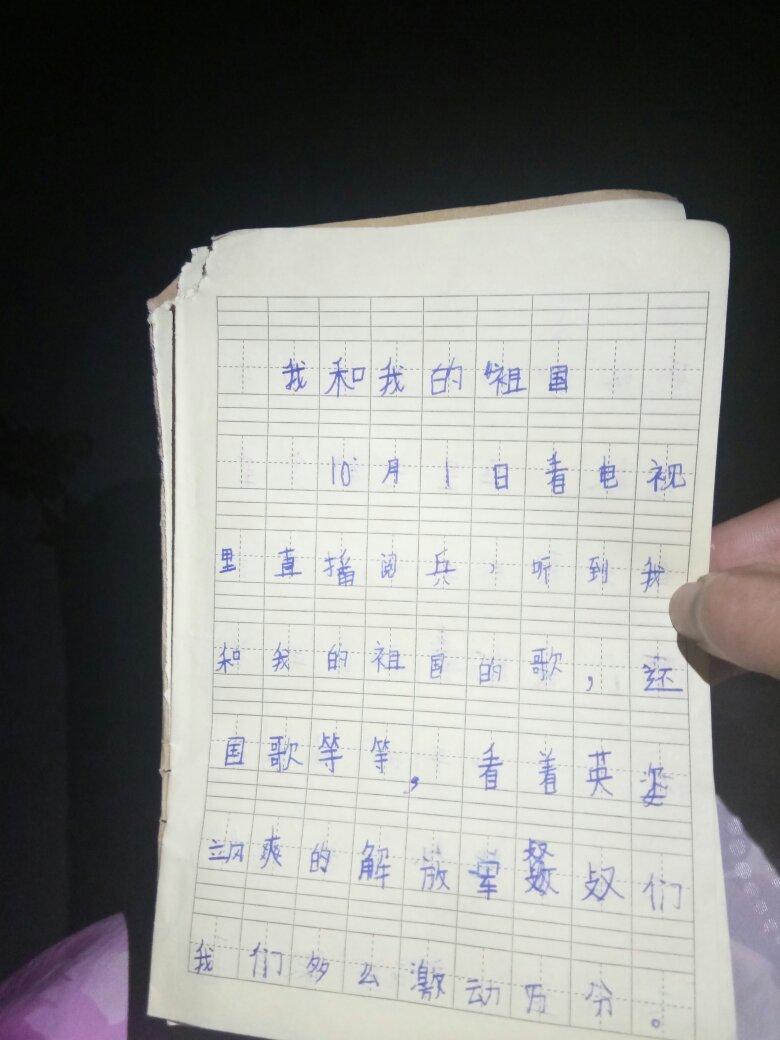 我和我的祖国
10月1日看电视
里直播阅兵，听到我
和我的祖国的歌，还
国歌等等，看着英姿
飒爽的解放军叔叔们
我们多么激动万分。